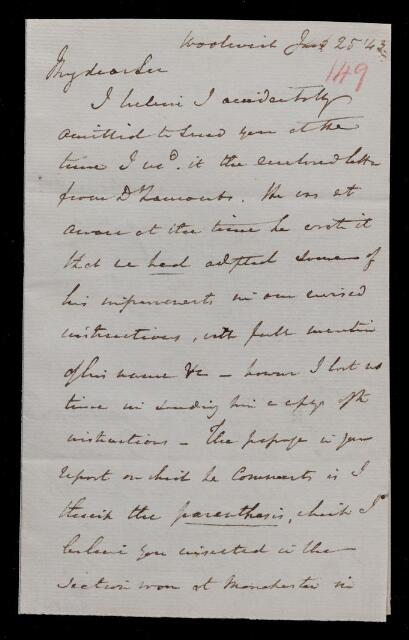 Woolwich Jany 25 '43
149
My dear Sir
I believe I accidentally
omitted to send you at the
time I recd. it the enclosed letter
from Dr Lamont's. He was not
aware at the time he wrote it
that we had adopted some of
his improvements in our revised
instructions, with full mention
of his name &c – however I lost no
time in sending him a copy of the
instructions – The passage in your
report on which he comments is I
think the parenthesis, which I
believe you inserted in the
section room at Manchester in